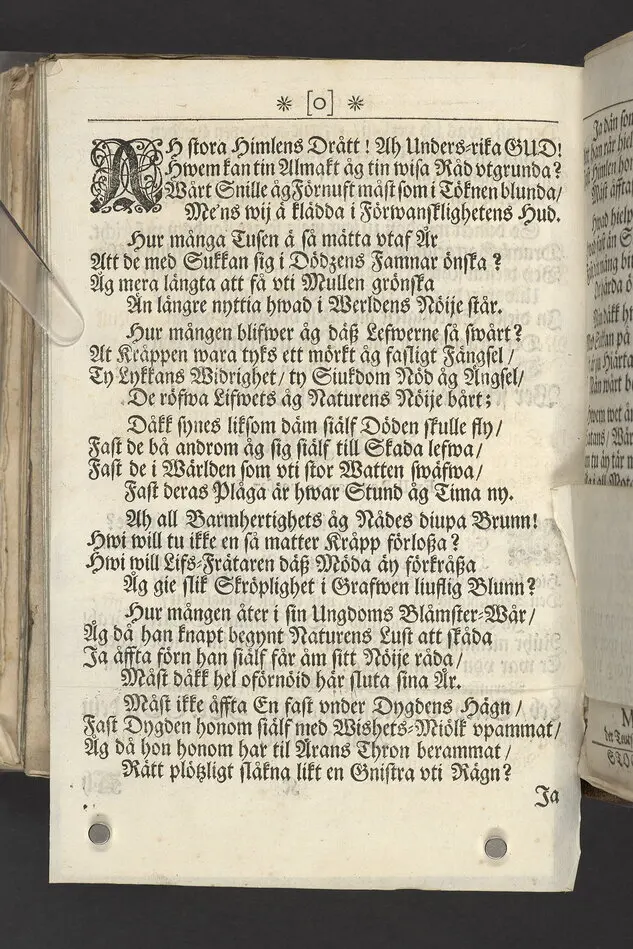 * [0] *
AH stora Himlens Drått! Ah Unders-rika GUD!
Hwem kan tin Almakt åg tin wisa Råd vtgrunda?
Wårt Snille åg Förnuft måst som i Töknen blunda/
Me'ns wij ä klädda i Förwansklighetens Hud.
Hur många Tusen ä så mätta vtaf År
Att de med Sukkan sig i Dödzens Famnar önska?
Åg mera långta att få vti Mullen grönska
Än långre nyttia hwad i Werldens Nöije står.
Hur mången blifwer åg däß Lefwerne så swårt?
At Kråppen wara tyks ett mörkt åg fasligt Fängsel/
Ty Lykkans Widrighet/ ty Siukdom Nöd åg Ängsel/
De röfwa Lifwets åg Naturens Nöije bårt;
Dåkk synes liksom däm siälf Döden skulle fly/
Fast de bå androm åg sig siälf till Skada lefwa/
Fast de i Wärlden som vti stor Watten swäfwa/
Fast deras Plåga är hwar Stund åg Tima ny.
Ah all Barmhertighets åg Nådes diupa Brunn!
Hwi will tu ikke en så matter Kråpp förloßa?
Hwi will Lifs-Frätaren däß Möda äy förkråßa
Åg gie slik Skröplighet i Grafwen liuflig Blunn?
Hur mången åter i sin Ungdoms Blåmster-Wår/
Åg då han knapt begynt Naturens Lust att skåda
Ja åffta förn han siälf får åm sitt Nöije råda/
Måst dåkk hel oförnöid här sluta sina År.
Måst ikke åffta En fast vnder Dygdens Hägn/
Fast Dygden honom siälf med Wishets-Miölk vpammat/
Åg då hon honom har til Ärans Thron berammat/
Rätt plötzligt släkna likt en Gnistra vti Rägn?
Ja